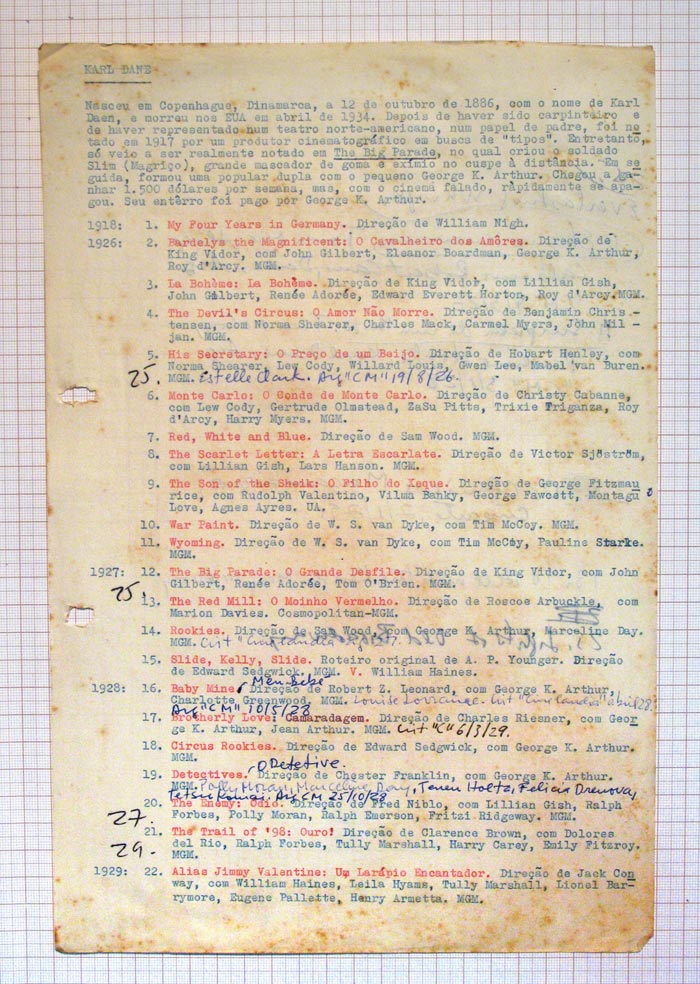 KARL DANE
Nasceu em Copenhague, Dinamarca, a 12 de outubro de 1886, com o nome de Karl
Daen, e morreu nos EUA em abril de 1934. Depois de haver sido carpinteiro e
de haver representado num teatro norte-americano, num papel de padre, foi no
tado em 1917 por um produtor cinematográfico em busca de "tipos". Entretanto,
só veio a ser realmente notado em The Big Parade, no qual criou o soldado
Slim (Magriço), grande mascador de goma e exímio no cuspe à distância. Em se
guida, formou uma popular dupla com o pequeno George K. Arthur. Chegou a ga-
nhar 1.500 dólares por semana, mas, com o cinema falado, ràpidamente se apa-
gou. Seu entêrro foi pago por George K. Arthur.
1918: 1. My Four Years in Germany. Direção de William Nigh.
1926: 2. Bardelys the Magnificent: O Cavalheiro dos Amôres. Direção de
King Vidor, com John Gilbert, Eleanor Boardman, George K. Arthur,
Roy d'Arcy. MGM.
3. La Bohème: La Bohème. Direção de King Vidor, com Lillian Gish,
John Gilbert, Renée Adorée, Edward Everett Horton, Roy d'Arcy. MGM.
4. The Devil's Circus: O Amor Não Morre. Direção de Benjamin Chris -
tensen, com Norma Shearer, Charles Mack, Carmel Myers, John Mil -
jan. MGM.
5. His Secretary: O Preço de um Beijo. Direção de Hobart Henley, com
Norma Shearer, Lew Cody, Willard Louis, Gwen Lee, Mabel van Buren.
25. MGM. Estelle Clark. Arq "CM" 19/8/26.
6. Monte Carlo: O Conde de Monte Carlo. Direção de Christy Cabanne,
com Lew Cody, Gertrude Olmstead, ZaSu Pitts, Trixie Friganza, Roy
d'Arcy, Harry Myers. MGM.
7. Red, White and Blue. Direção de Sam Wood. MGM.
8. The Scarlet Letter: A Letra Escarlate. Direção de Victor Sjöström,
com Lillian Gish, Lars Hanson. MGM.
9. The Son of the Sheik: O Filho do Xeque. Direção de George Fitzmau
rice, com Rudolph Valentino, Vilma Banky, George Fawcett, Montagu
Love, Agnes Ayres. UA.
10. War Paint. Direção de W. S. van Dyke, com Tim McCoy. MGM.
11. Wyoming. Direção de W. S. van Dyke, com Tim McCoy, Pauline Starke.
MGM.
1927: 12. The Big Parade: O Grande Desfile. Direção de King Vidor, com John
25. Gilbert, Renée Adorée, Tom O'Brien. MGM.
13. The Red Mill: O Moinho Vermelho. Direção de Roscoe Arbuckle, com
Marion Davies. Cosmopolitan-MGM.
14. Rookies. Direção de Sam Wood, com George K. Arthur, Marceline Day.
MGM.
15. Slide, Kelly, Slide. Roteiro original de A. P. Younger. Direção
de Edward Sedgwick. MGM. V. William Haines.
1928: 16. Baby Mine, Meu Bebê Direção de Robert Z. Leonard, com George K. Arthur,
Charlotte Greenwood, MGM. Louise Lorraine. Crit "Cinelandia" abril 28.
Arq "CM" 10/5/28
17. Brotherly Love: Camaradagem. Direção de Charles Riesner, com Geor
ge K. Arthur, Jean Arthur. MGM. Crit "C" 6/3/29.
18. Circus Rookies. Direção de Edward Sedgwick, com George K. Arthur.
MGM.
19. Detectives. O Detetive. Direção de Chester Franklin, com George K. Arthur.
MGM. Polly Moran, Marceline Day, Tenen Holtz, Felicia Drenova,
Tetsu Komai. Arq CM 25/10/28
20. The Enemy: Ódio. Direção de Fred Niblo, com Lillian Gish, Ralph
27. Forbes, Polly Moran, Ralph Emerson, Fritzi Ridgeway. MGM.
21. The Trail of '98: Ouro! Direção de Clarence Brown, com Dolores
29. del Rio, Ralph Forbes, Tully Marshall, Harry Carey, Emily Fitzroy.
MGM.
1929: 22. Alias Jimmy Valentine: Um Larápio Encantador. Direção de Jack Con
way, com William Haines, Leila Hyams, Tully Marshall, Lionel Bar-
rymore, Eugene Pallette, Henry Armetta. MGM.